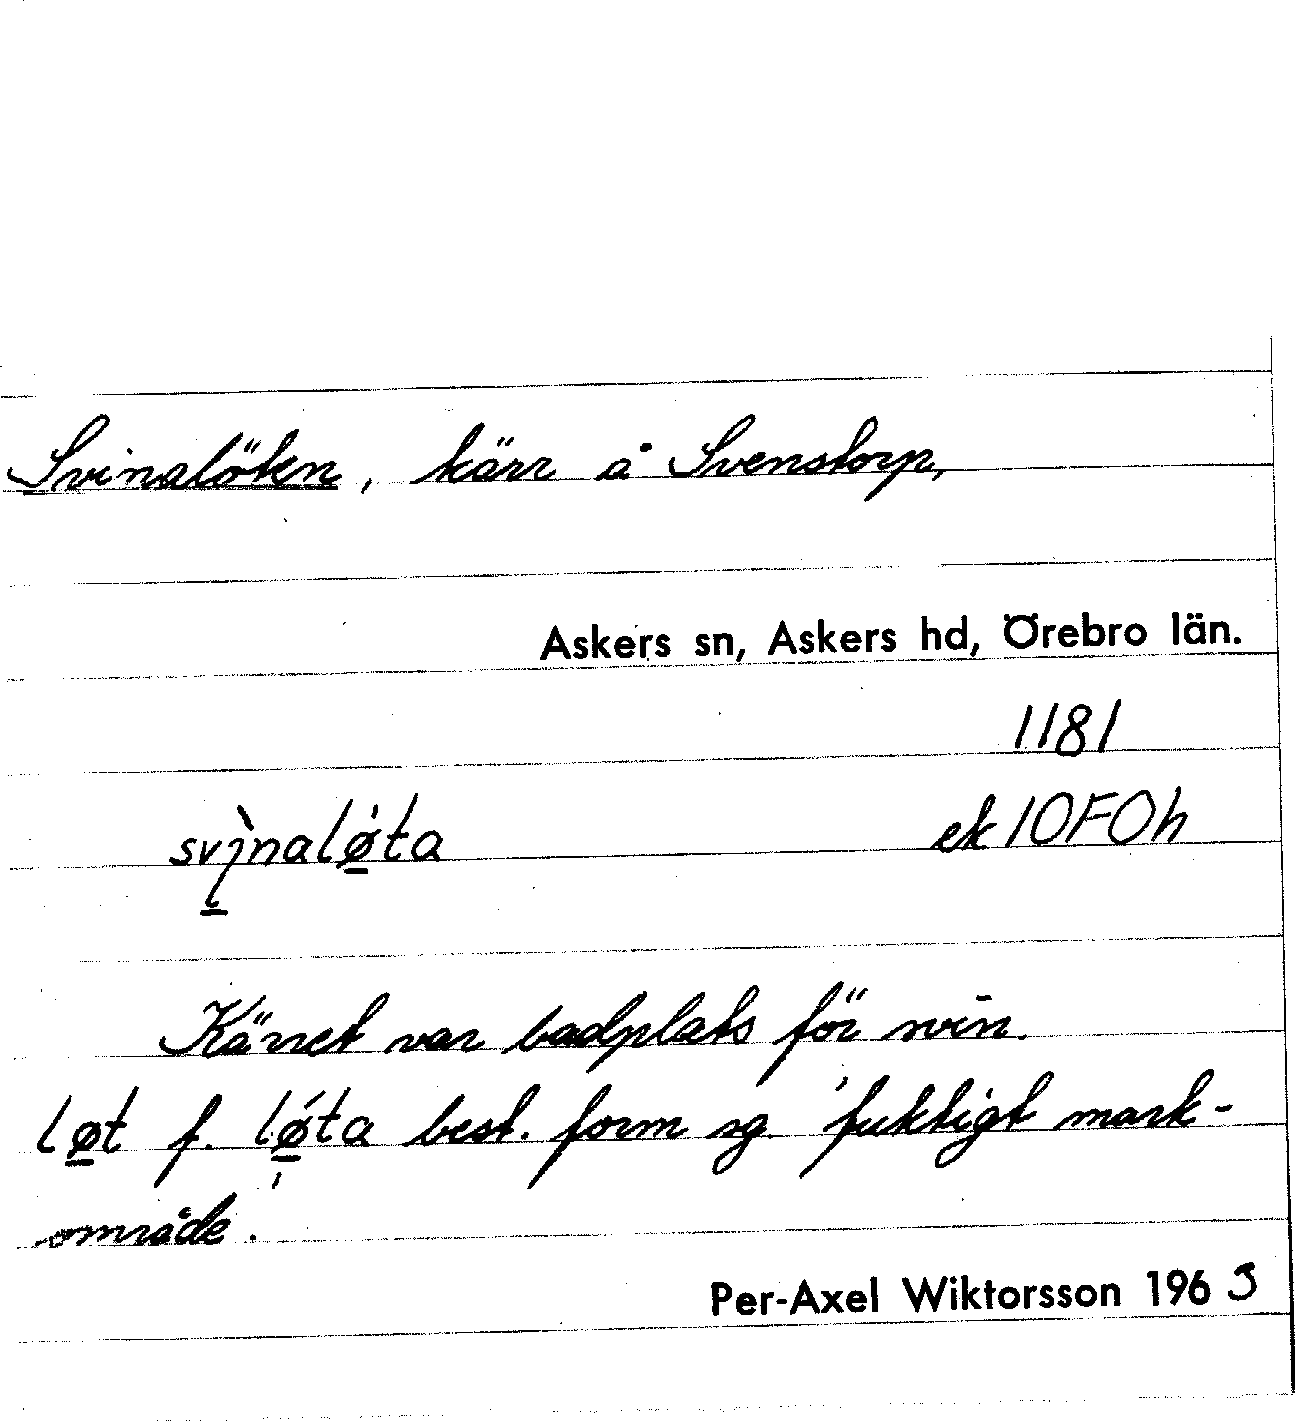 Svinalöten, kärr å Svenstorp,
Askers sn, Askers hd, Örebro län.
1181
svı̀naløta ek 10F0h
Kärret var badplats för svin.
løt f. løta best. form sg. 'fuktigt mark-
område'.
Per-Axel Wiktorsson 1965